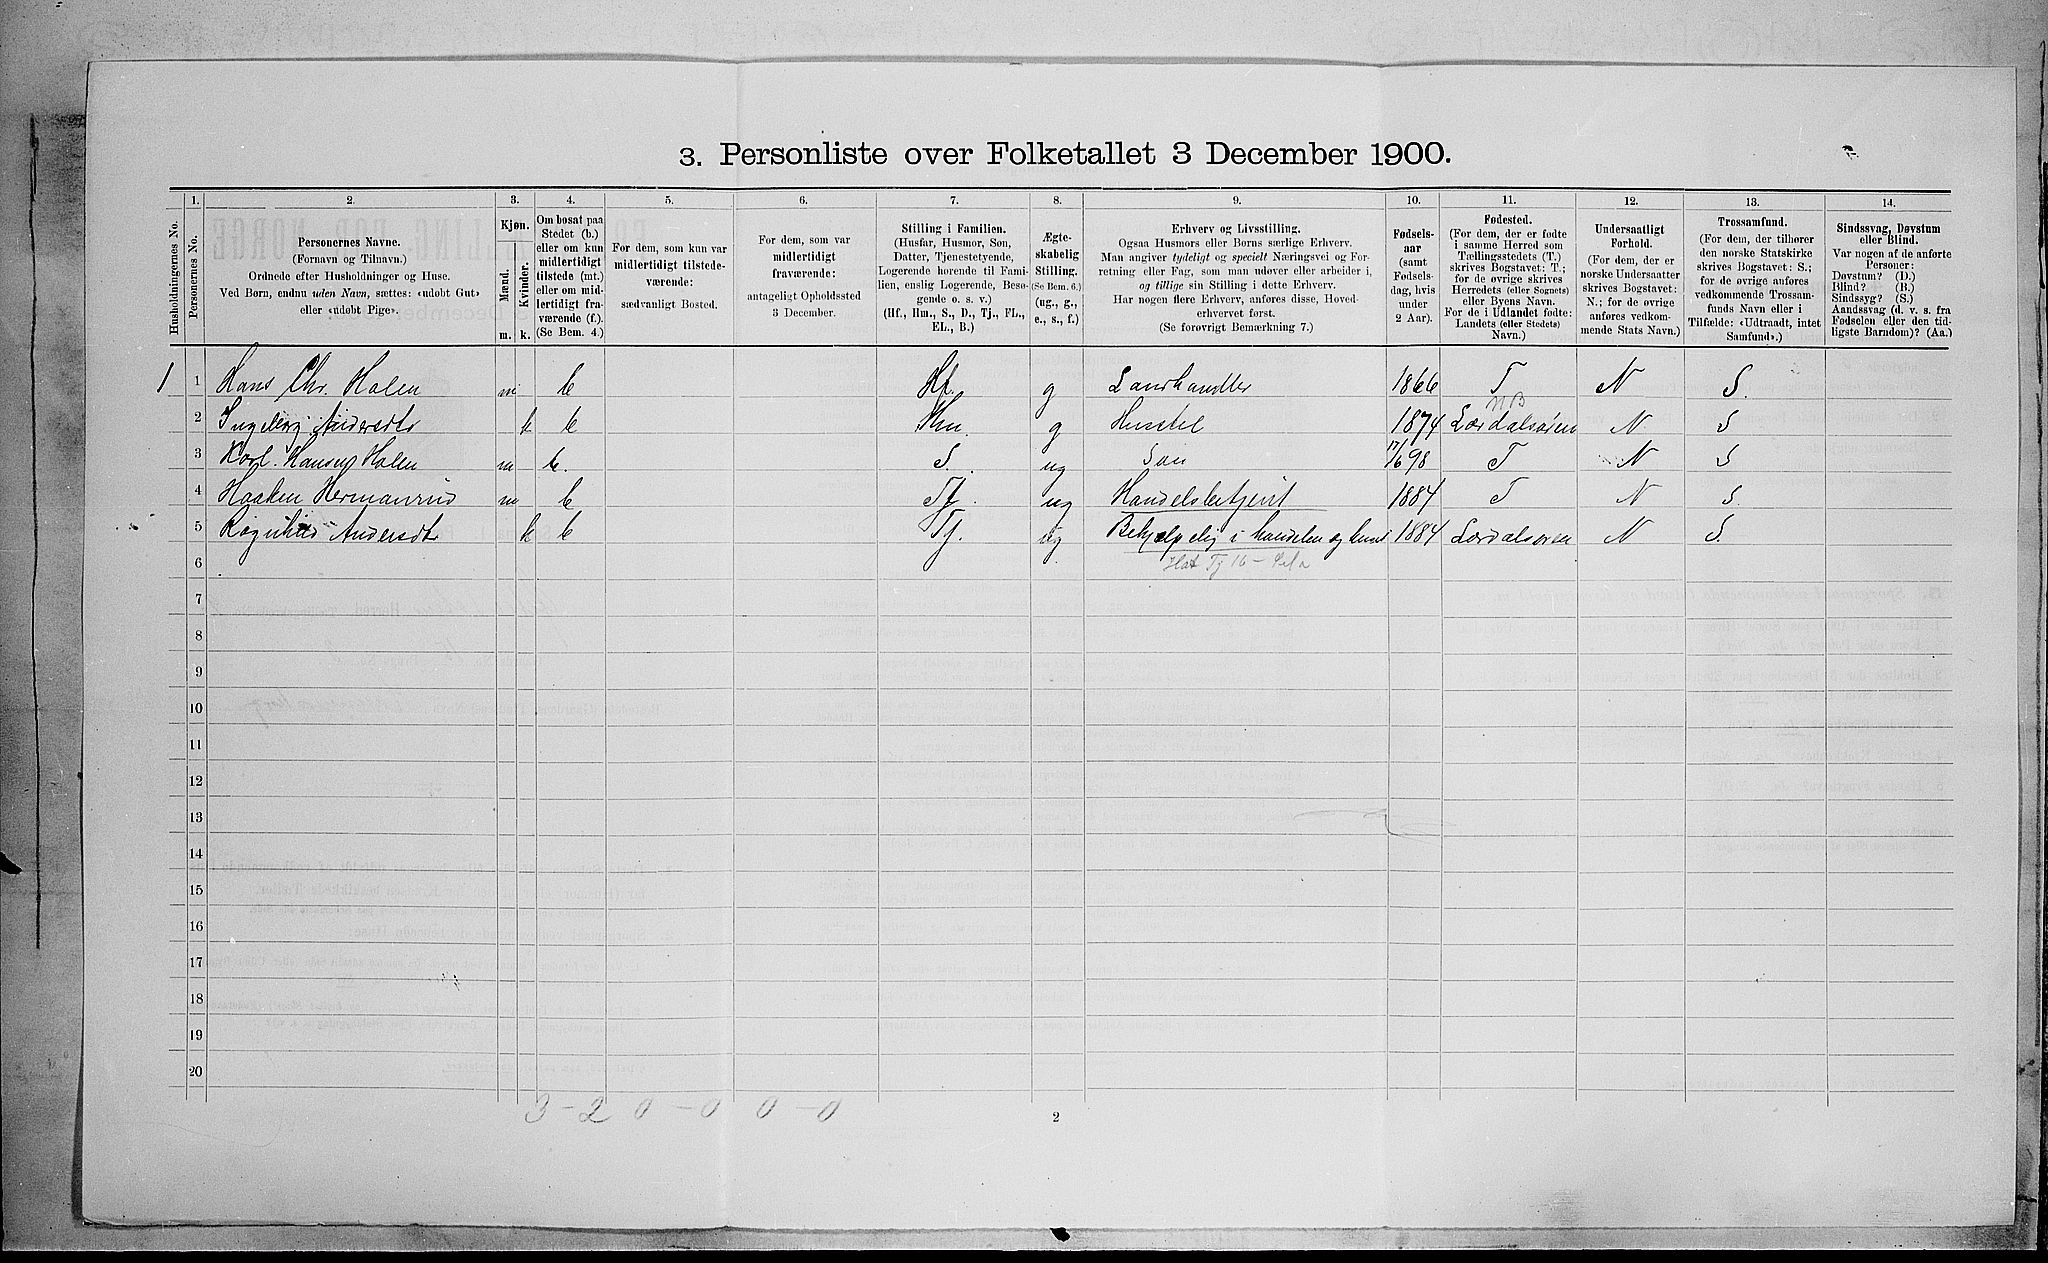 3. Personliste over Folketallet 3 December 1900.
1. 2. 3. 4. 5. 6. 7. 8. 9. 10. 11. 12. 13. 14.
Husholdningernes No.
Personernes No.
Personernes Navne.
(Fornavn og Tilnavn.)
Ordnede efter Husholdninger og Huse.
Ved Børn, endnu uden Navn, sættes: «udøbt Gut»
eller «udøbt Pige».
Kjøn.
Mænd.
Kvinder.
m. k.
Om bosat paa
Stedet (b.)
eller om kun
midlertidigt
tilstede (mt.)
eller om mid-
lertidigt fra-
værende (f.)
(Se Bem. 4.)
For dem, som kun var
midlertidigt tilstede-
værende:
sædvanligt Bosted.
For dem, som var
midlertidigt
fraværende:
antageligt Opholdssted
3 December.
Stilling i Familien.
(Husfar, Husmor, Søn,
Datter, Tjenestetyende,
Logerende hørende til Fami-
lien, enslig Logerende, Besø-
gende o. s. v.)
(Hf., Hm., S., D., Tj., FL.,
EL., B.)
Ægte-
skabelig
Stilling.
(Se Bem. 6.)
(ug., g.,
e., s., f.)
Erhverv og Livsstilling.
Ogsaa Husmors eller Børns særlige Erhverv.
Man angiver tydeligt og specielt Næringsvei og For-
retning eller Fag, som man udøver eller arbeider i,
og tillige sin Stilling i dette Erhverv.
Har nogen flere Erhverv, anføres disse, Hoved-
erhvervet først.
(Se forøvrigt Bemærkning 7.)
Fødsels-
aar
(samt
Fødsels-
dag, hvis
under
2 Aar).
Fødested.
(For dem, der er fødte
i samme Herred som
Tællingsstedets (T.)
skrives Bogstavet: T.;
for de øvrige skrives
Herredets (eller Sognets)
eller Byens Navn.
For de i Udlandet fødte:
Landets (eller Stedets)
Navn.)
Undersaatligt
Forhold.
(For dem, der er
norske Undersaatter
skrives Bogstavet:
N.; for de øvrige
anføres vedkom-
mende Stats Navn.)
Trossamfund.
(For dem, der tilhører
den norske Statskirke
skrives Bogstavet: S.;
for de øvrige anføres
vedkommende Trossam-
funds Navn eller i
Tilfælde: «Udtraadt, intet
Samfund».)
Sindssvag, Døvstum
eller Blind.
Var nogen af de anførte
Personer:
Døvstum? (D.)
Blind? (B.)
Sindssyg? (S.)
Aandssvag (d. v. s. fra
Fødselen eller den tid-
ligste Barndom)? (Aa.)
1 1 Hans Chr. Holen m b Hf. g Landhandler 1866 T N S.
NB
2 Ingeborg Andersdtr k b Hm. g Husstel 1874 Lærdalsøren N S
3 Karl Hansen Holen m b. S. ug Søn 17/6 98 T N S
4 Haaken Hermansrud m b Tj. ug Handelsbetjent 1884 T N S.
5 Ragnhild Andersdt k b Tj. ug Behjælpelig i handelen og huset 1884 Lærdalsøren N S.
6
7
8
9
10
11
12
13
14
15
16
17
18
19
20
3 - 2 0 - 0 0 - 0
2